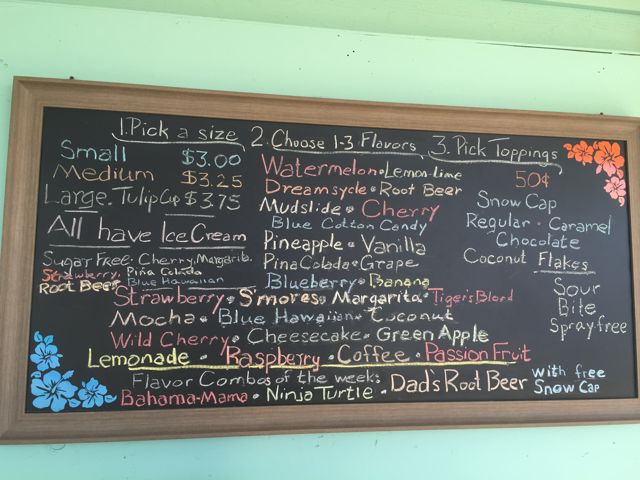 1. Pick a size
Small $3.00
Medium $3.25
Large. Tulip Cup $3.75
All have Ice Cream
Sugar Free. Cherry, Margarita.
Strawberry. Piña Colada
Root Beer Blue Hawaiian
2. Choose 1-3 Flavors
Watermelon • Lemon-lime
Dreamsycle • Root Beer
Mudslide • Cherry
Blue Cotton Candy
Pineapple • Vanilla
Pina Colada • Grape
Blueberry • Banana
Strawberry • S'mores • Margarita • Tiger's Blood
Mocha • Blue Hawaiian • Coconut
Wild Cherry • Cheesecake • Green Apple
Lemonade • Raspberry • Coffee • Passion Fruit
3. Pick Toppings
50¢
Snow Cap
Regular • Caramel
Chocolate
Coconut Flakes
Sour
Bite
Spray-free
Flavor Combos of the week:
Bahama-Mama • Ninja Turtle • Dad's Root Beer with free
Snow Cap